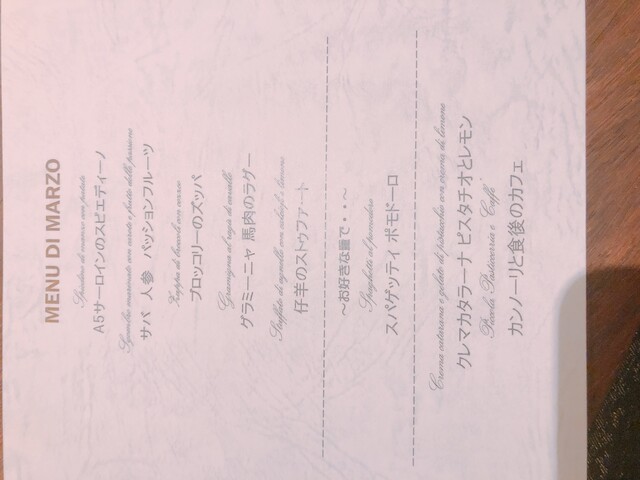 MENU DI MARZO
Spiedino di manzo con patate
A5サーロインのスピエディーノ
Sgombro marinato con carote e frutto della passione
サバ 人参 パッションフルーツ
Zuppa di broccoli con
ブロッコリーのズッパ
Gramigna al ragù di cavallo
グラミーニャ 馬肉のラグー
Stufato di agnello con e limone
仔羊のストゥファート
～お好きな量で・・～
Spaghetti al pomodoro
スパゲッティ ポモドーロ
Crema catarana e gelato di pistacchio con crema di limone
クレマカタラーナ ピスタチオとレモン
Piccola Pasticceria e Caffè
カンノーリと食後のカフェ